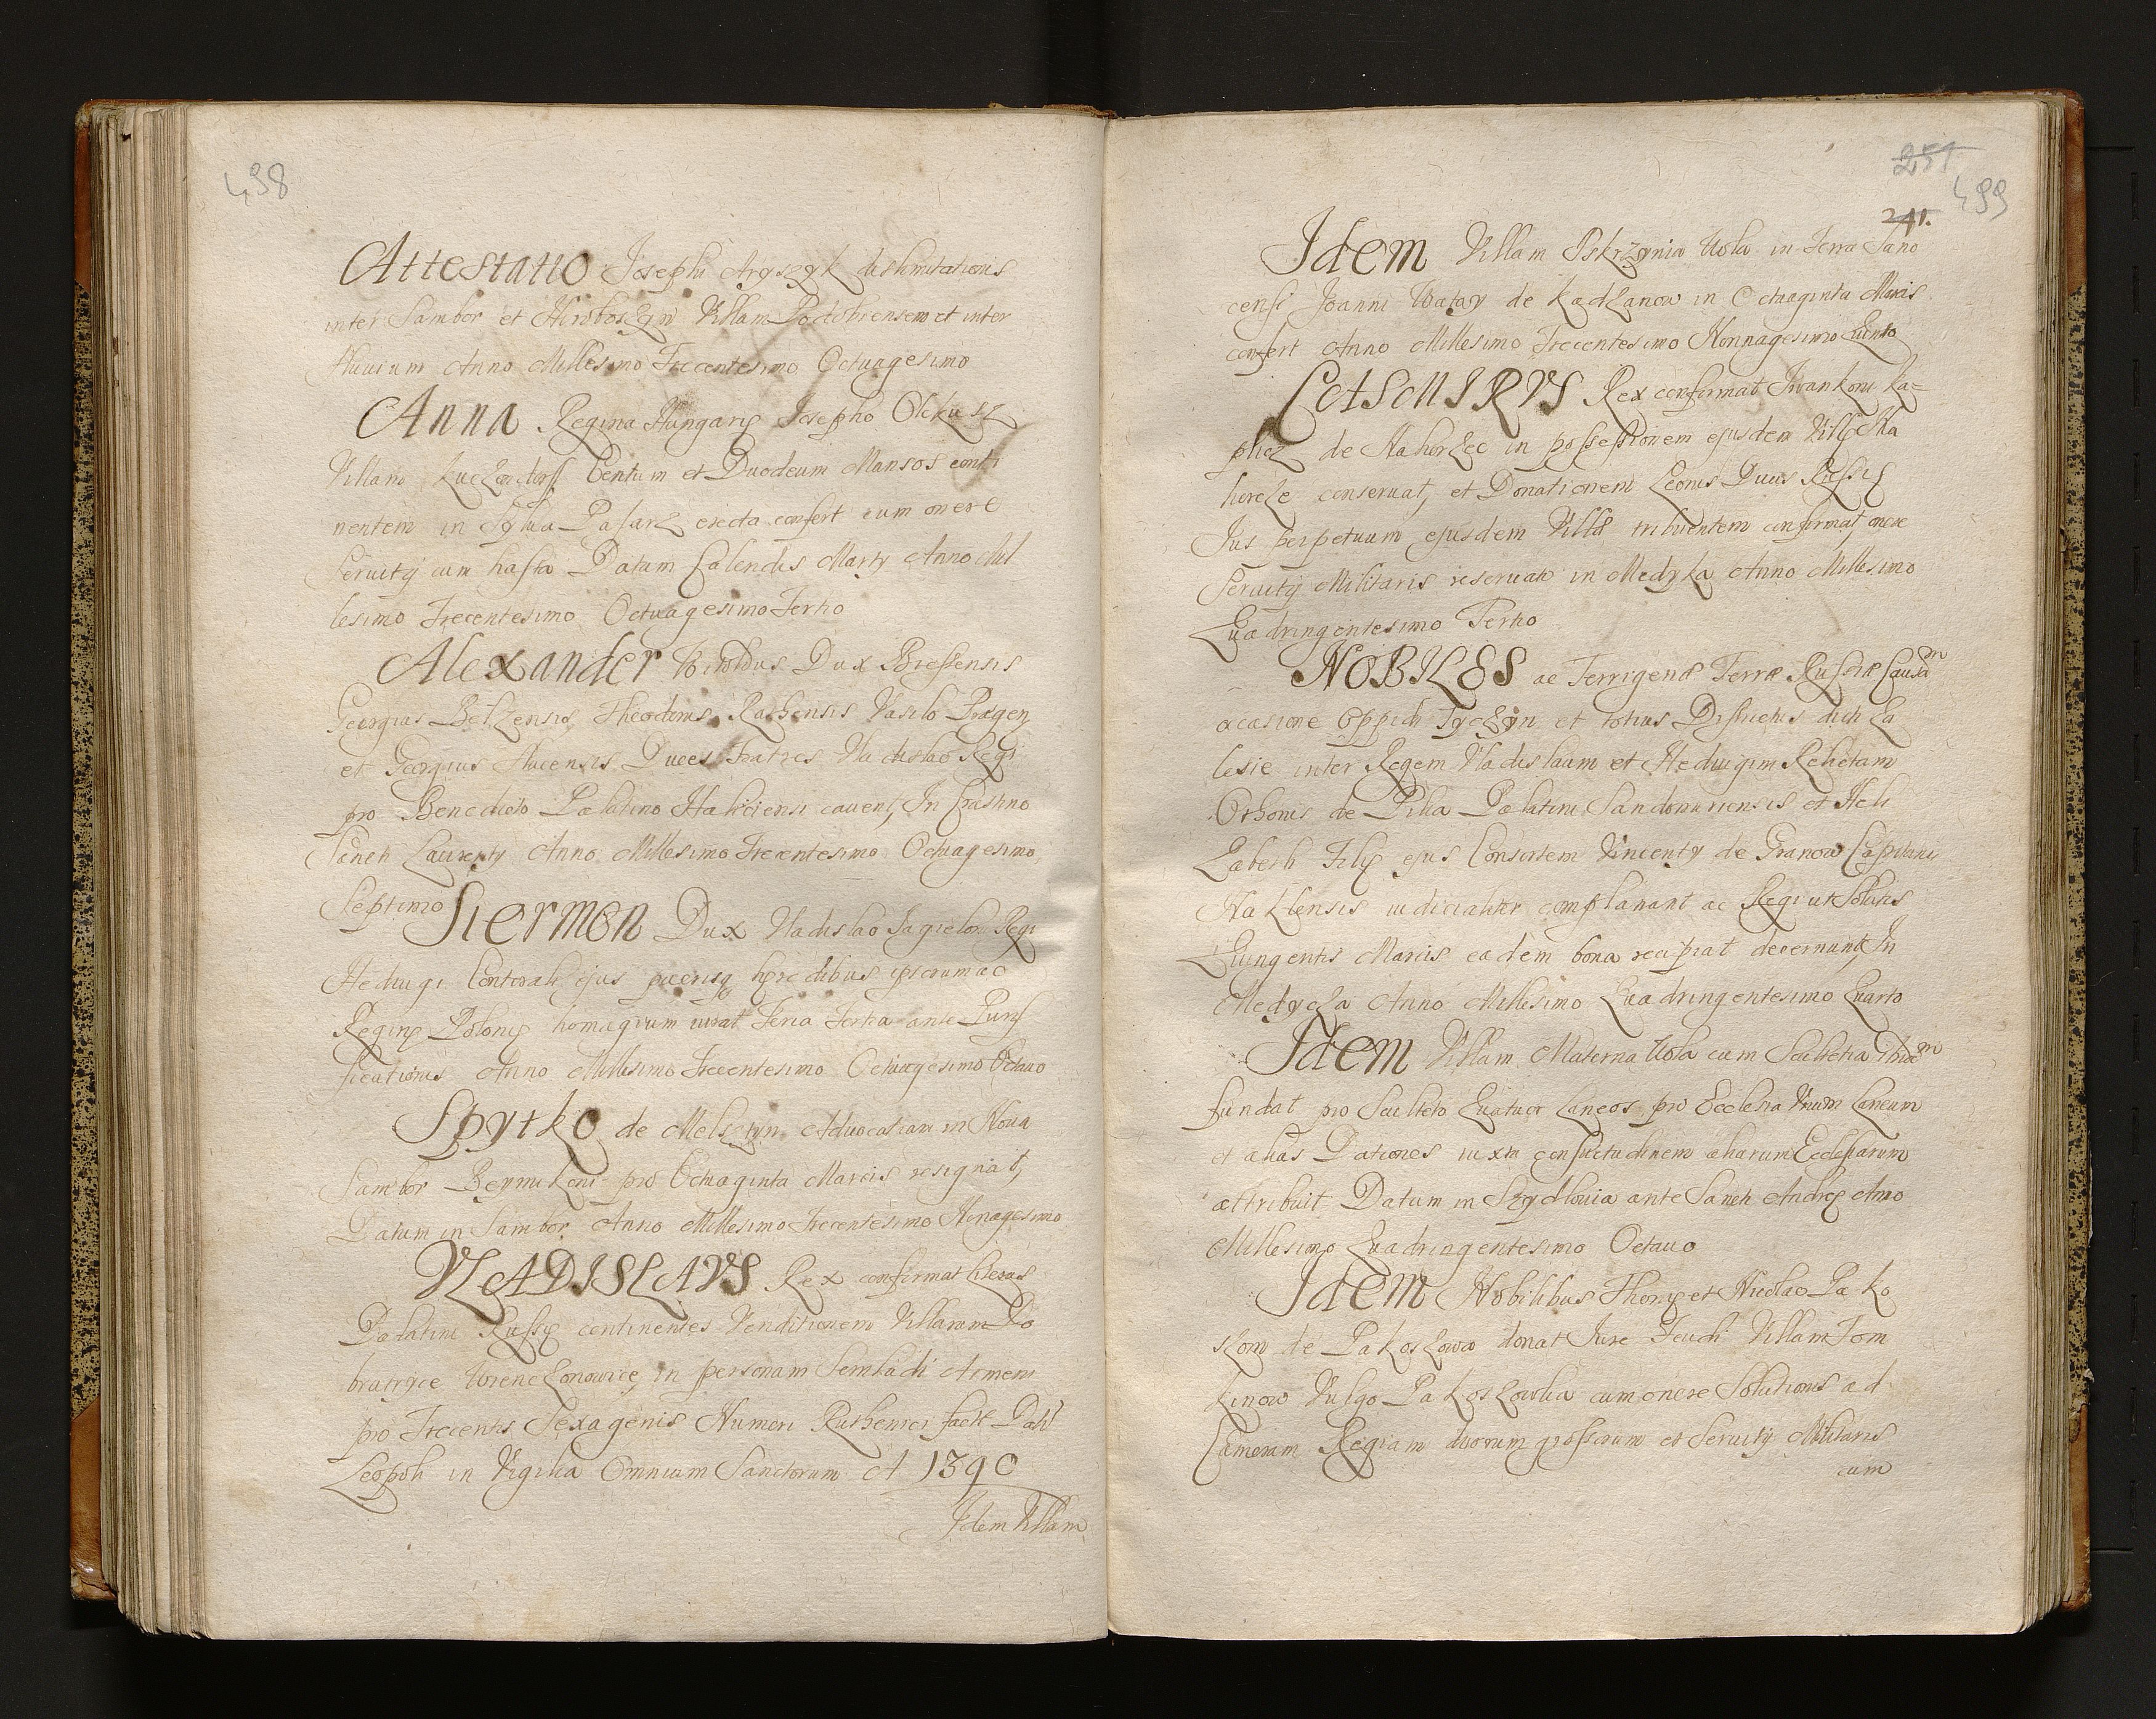 498
Attestatio Josephi Aryszyk dislimitationis
inter Sambor et Hiroboszyn Villam Podobiensem et inter
fluuium Anno Millesimo Trecentesimo Octuagesimo
Anna Reginа Hungarię Josepho Olekusz
Villam Centum et Duodeum Mansos conti
nentem in Sylua Pasarz erecta confert cum onere
Seruitÿ cum hasta Datum Calendis Martÿ Anno Mil
lesimo Trecentesimo Octuagesimo Tertio
Alexander Vitoldus Dux Brestensis
Georgius Belzensis, Theodorus Rathensis Vasilo Pragen
et Georgius Slucensis Duces Fratres Vladislao Regi
pro Benedicto Palatino Haliciensi cauent, In Crastino
Sancti Laurentÿ Anno Millesimo Trecentesimo Octuagesimo
Septimo Siermon Dux Vladislao Jagieloni Regi
Heduigi Contorali ejus puerisq hęredibus ipsorum ac
Reginę Polonię homagium iurat Feria Tertia ante Purif
ficationis Anno Millesimo Trecentesimo Octuagesimo Octauo
Spytko de Melsztyn Aduocatiam in Noua
Sambor Reymikoni pro Octuaginta Marcis resignat,
Datum in Sambor Anno Millesimo Trecentesimo Nonagesimo
VLADISLAVS Rex confirmat literas
Palatini Russię continentes Venditionem Villarum Do
bratryce Worenczonowice, in personam Semkadi Armeni
pro Trecentis Sexagenis Numeri Ruthenici factę Datt
Leopoli in Vigilia Omnium Sanctorum A 1390
Idem Villam
251
499
241.
Idem Villam Pskrzynia Wola in Terra Sano
censi Joanni Watay de Ladzanow in Octuaginta Marcis
confert Anno Millesimo Trecentesimo Nonnagesimo Quinto
CASMIRVS Rex confirmat Iwankoni Ka-
plicz de Nahorzec in possessionem ejusdem Villę Na
horcze conseruat, et Donationem Leonis Ducis Russię
Jus perpetuum ejusdem Villæ tribuentem confirmat onere
Seruitÿ Militaris reseruato in Medyka Anno Millesimo
Quadringentesimo Tertio
NOBILES ac Terrigenæ Terræ Russiæ Causam
occasione Oppidi Tyczyn et totius Districtus dicti Za
lesie inter Regem Vladislaum et Heduigim Relictam
Othonis de Pilia Palatini Sandomiriensis et Heli
Zabeth Filię ejus Consortem Vincentÿ de Granow Capitanei
Naklensis iudicialiter complanant ac Regi ut Solutis
Quingentis Marcis eadem bona recipiat decernunt, In
Medycza Anno Millesimo Quadringentesimo Quarto
Idem Villam Materna Wola cum Scultetia Ibidem
fundat pro Sculteto Quatuor Laneos pro Ecclesia Vnum Laneum
et alias Dationes iuxta consuetudinem aliarum Ecclesiarum
attribuit Datum in Szydlouia ante Sancti Andreę Anno
Millesimo Quadringentesimo Octauo
Idem Nobilibus Thomę et Nicolao Pako
szom de Pakoszowa donat Jure Feudi Villam Tom
kinow Vulgo Pakoszowka cum onere Solutionis ad
Cameram Regiam duorum grossorum et Seruitÿ Militaris
cum